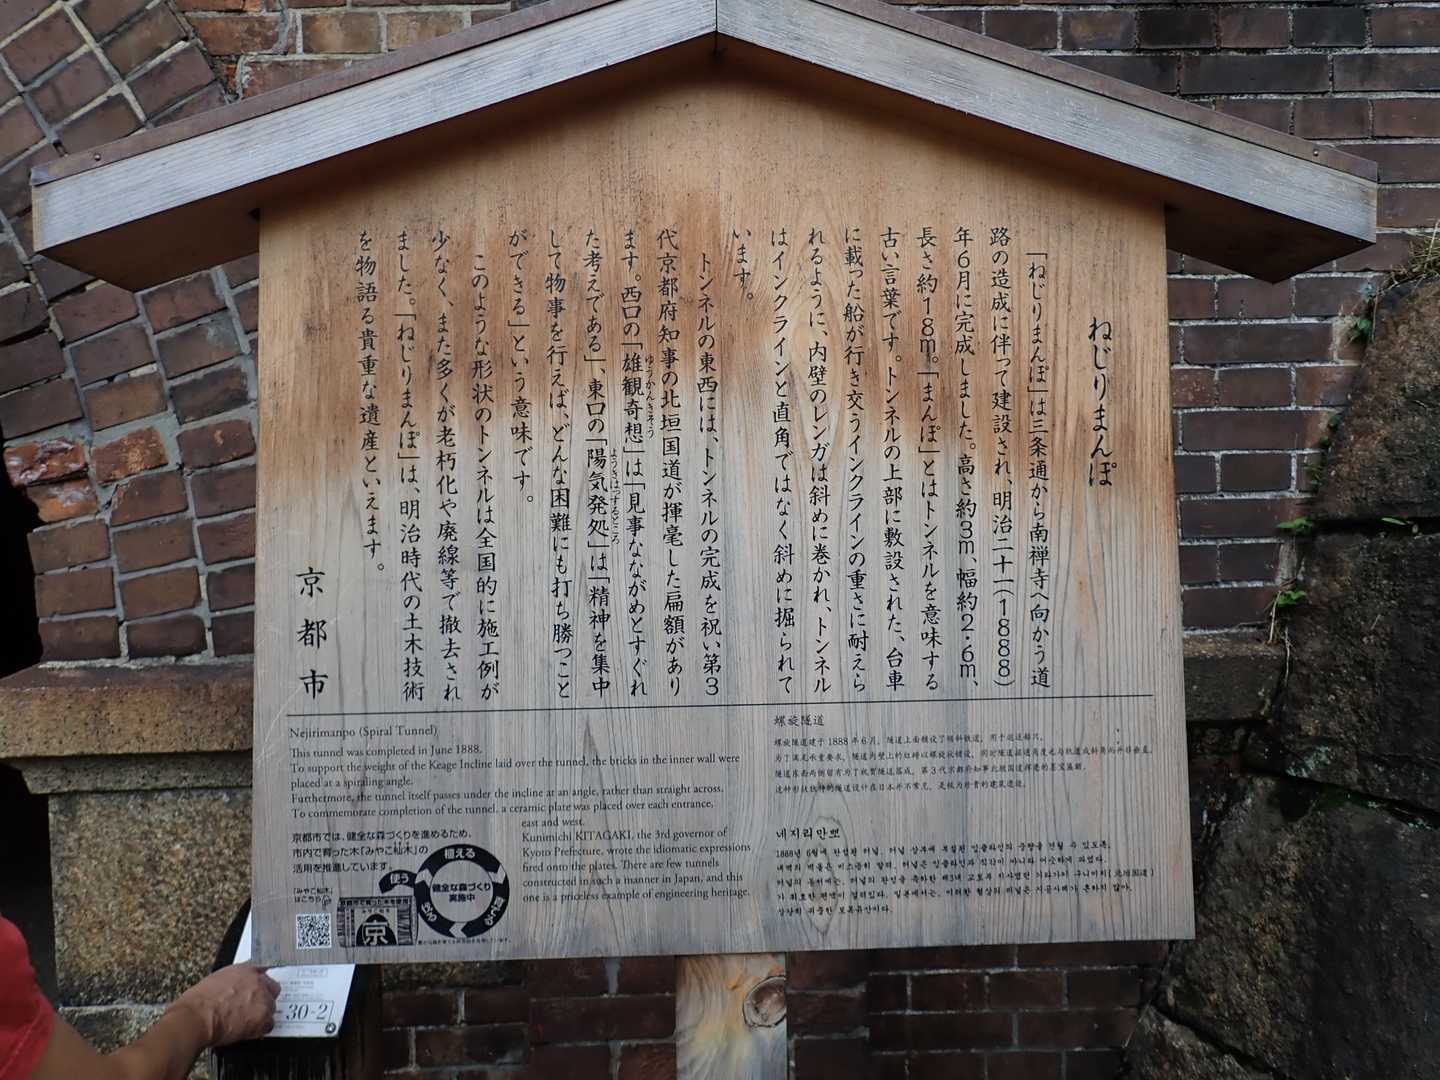 ねじりまんぽ
「ねじりまんぽ」は三条通から南禅寺へ向かう道
路の造成に伴って建設され、明治二十一(1888)
年6月に完成しました。高さ約3m、幅約2.6m、
長さ約18m。「まんぽ」とはトンネルを意味する
古い言葉です。トンネルの上部に敷設された、台車
に載った船が行き交うインクラインの重さに耐えら
れるように、内壁のレンガは斜めに巻かれ、トンネル
はインクラインと直角ではなく斜めに掘られて
います。
トンネルの東西には、トンネルの完成を祝い第3
代京都府知事の北垣国道が揮毫した扁額があり
ます。西口の「雄観奇想」は「見事なながめとすぐれ
ゆうかんきそう
た考えである」、東口の「陽気発処」は「精神を集中
ようきはっするところ
して物事を行えば、どんな困難にも打ち勝つこと
ができる」という意味です。
このような形状のトンネルは全国的に施工例が
少なく、また多くが老朽化や廃線等で撤去され
ました。「ねじりまんぽ」は、明治時代の土木技術
を物語る貴重な遺産といえます。
京都市
Nejirimanpo (Spiral Tunnel)
This tunnel was completed in June 1888.
To support the weight of the Keage Incline laid over the tunnel, the bricks in the inner wall were
placed at a spiraling angle.
Furthermore, the tunnel itself passes under the incline at an angle, rather than straight across.
To commemorate completion of the tunnel, a ceramic plate was placed over each entrance,
east and west.
Kunimichi KITAGAKI, the 3rd governor of
Kyoto Prefecture, wrote the idiomatic expressions
fired onto the plates. There are few tunnels
constructed in such a manner in Japan, and this
one is a priceless example of engineering heritage.
京都市では、健全な森づくりを進めるため、
市内で育った木「みやこ杣木」の
活用を推進しています。
「みやこ杣木」
はこちら
植える
育てる
使う
健全な森づくり
実施中
京都市で育った木を使用
京
螺旋隧道
螺旋隧道建于1888年6月，隧道上面铺设了倾斜轨道，用于运送船只。
为了满足承重要求，隧道内壁上的红砖以螺旋状铺设，
네지리만뽀
1888년 6월에 완성된 터널. 터널 상부에 부설된 인클라인의 중량을 견딜 수 있도록,
내벽의 벽돌은 비스듬히 말려, 터널은 인클라인과 직각이 아니라 비스듬하게 파였다.
-30-2